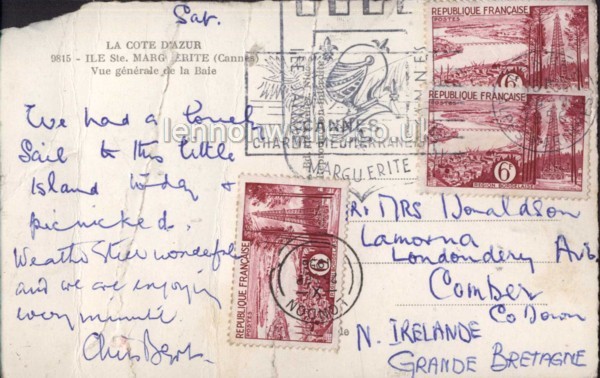 Sat.
LA COTE D'AZUR
9815 - ILE Ste. MARGUERITE (Cannes)
Vue générale de la Baie
We had a lovely
Sail to this little
island today &
picnicked.
Weather still wonderful
and we are enjoying
every minute.
CANNES
CHARME MEDITERRANEE
MARGUERITE
lennonwylie.co.uk
RÉPUBLIQUE FRANÇAISE
POSTES
6F
RÉPUBLIQUE FRANÇAISE
POSTES
6F
RÉGION BORDELAISE
RÉPUBLIQUE FRANÇAISE
6F
LONDON
MRS Donaldson
Lamorna
Londonderry Av.
Comber
Co Down
N. IRELANDE
GRANDE BRETAGNE